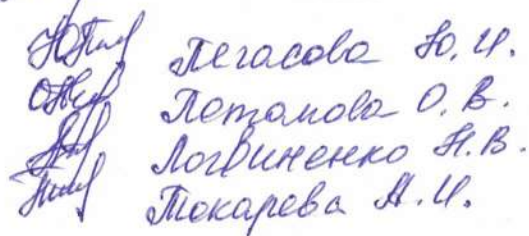 Пегасова Ю.И.
Потапова О.В.
Логвиненко Н.В.
Токарева А.И.